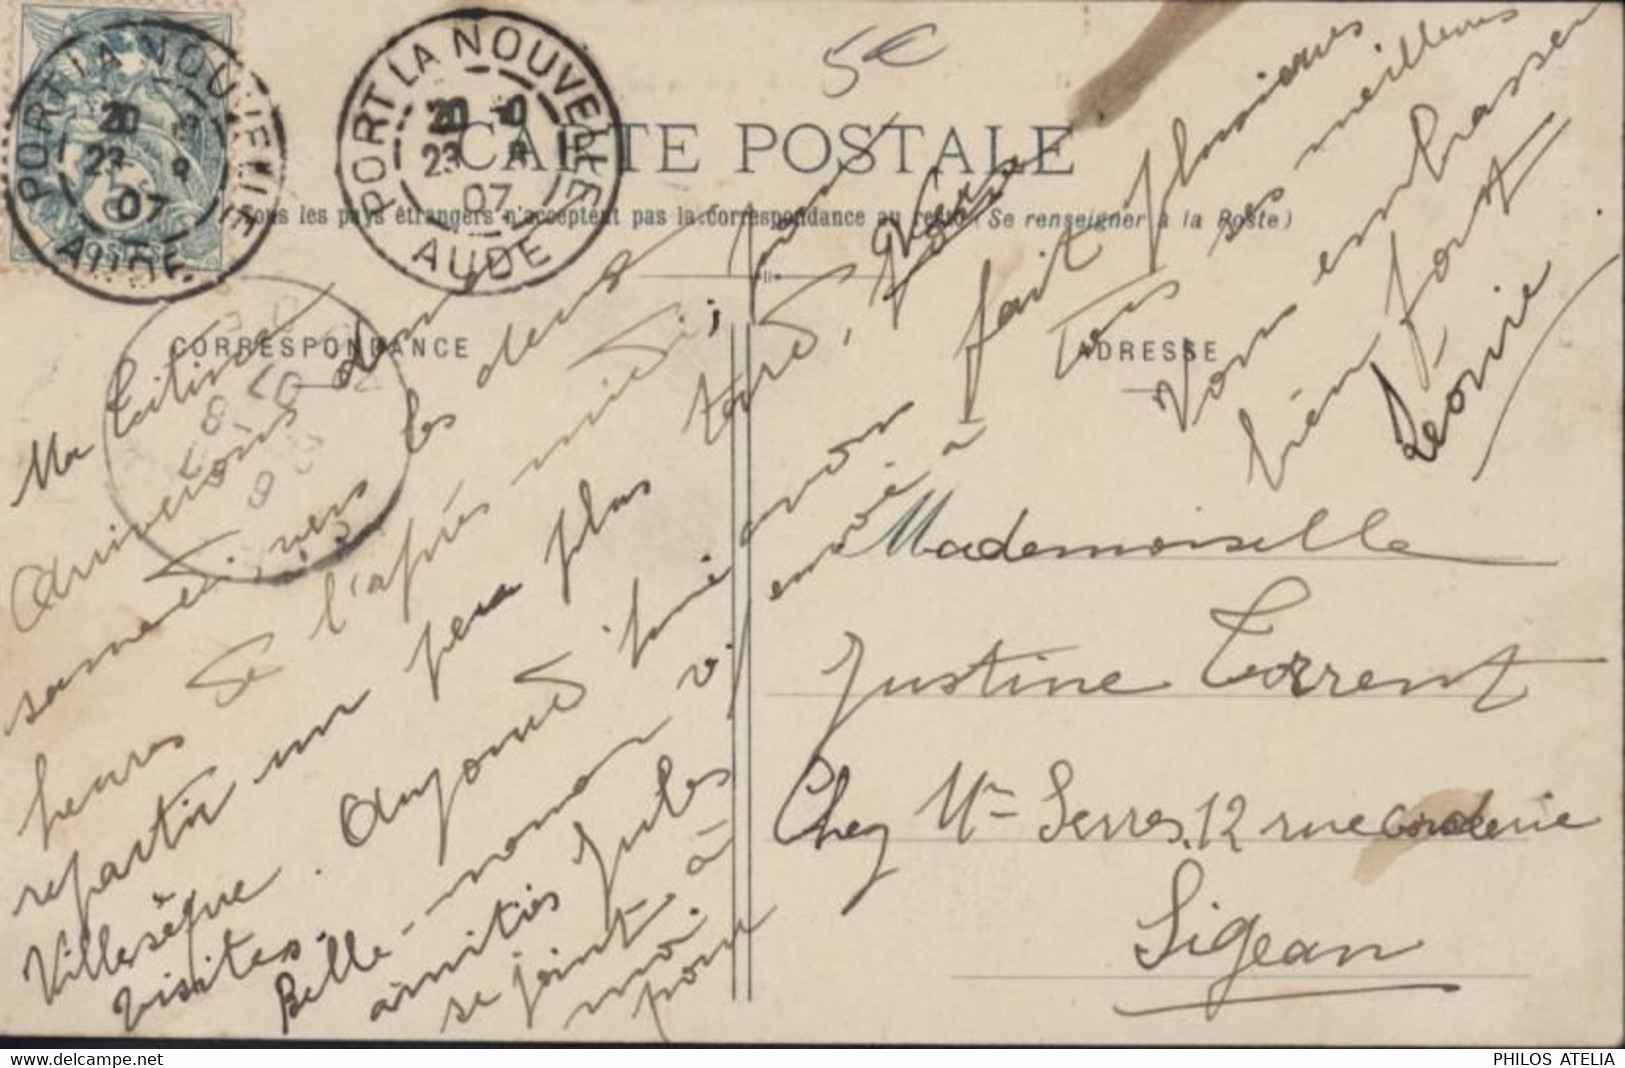 5€
PORT LA NOUVELLE
23 8
07
AUDE
PORT LA NOUVELLE
23 8
07
AUDE
POSTES
CARTE POSTALE
Tous les pays étrangers n'acceptent pas la correspondance au recto (Se renseigner à la Poste)
CORRESPONDANCE
ADRESSE
Ma Titine
Arriverons
samedi, vers les deux
heures de l'après midi, pour
repartir un peu plus tard, vers
Villesèque. Aujourd'hui avons fait plusieurs
visites.
Belle-maman vs envoie
amitiés Jules
se joint à
moi
pour
vous embrasser
bien fort
Léonie
Tous ses meilleures
Mademoiselle
Justine Torrent
Chez Mr Serres, 12 rue Corderie
Sigean
PHILOS ATELIA
www.delcampe.net